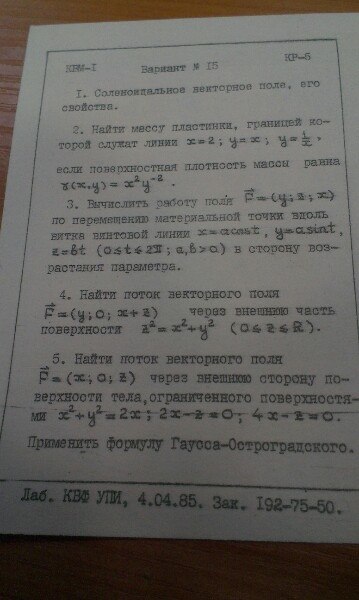 КВМ-I Вариант № I5 КР-5
I. Соленоидальное векторное поле, его
свойства.
2. Найти массу пластинки, границей ко-
торой служат линии x=2; y=x; y=1/x,
если поверхностная плотность массы равна
γ(x,y)=x²y⁻².
3. Вычислить работу поля F⃗=(y;z;x)
по перемещению материальной точки вдоль
витка винтовой линии x=acost, y=asint,
z=bt (0≤t≤2π; a,b>0) в сторону воз-
растания параметра.
4. Найти поток векторного поля
F⃗=(y;0;x+z) через внешнюю часть
поверхности z²=x²+y² (0≤z≤R).
5. Найти поток векторного поля
F⃗=(x;0;z) через внешнюю сторону по-
верхности тела,ограниченного поверхностя-
ми x²+y²=2x; 2x-z=0; 4x-z=0.
Применить формулу Гаусса-Остроградского.
Лаб. КВФ УПИ, 4.04.85. Зак. I92-75-50.